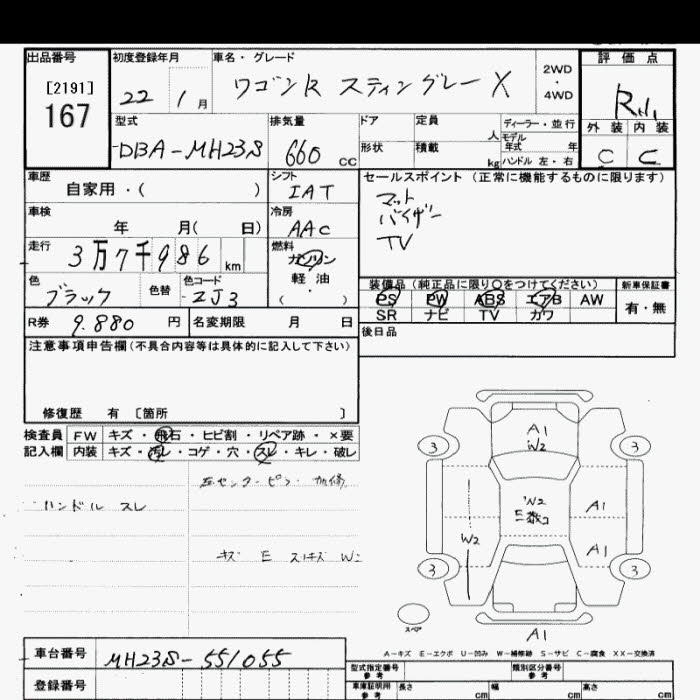 出品番号 初度登録年月 車名・グレード 評価点
[2191] 167 22 1月 ワゴンR スティングレー X 2WD・4WD
型式 排気量 ドア 定員 人 ディーラー・並行 外装 内装
DBA-MH23S 660 CC 形状 積載 kg モデル年式 年 ハンドル 左・右 C C
車歴 シフト セールスポイント (正常に機能するものに限ります)
自家用・( ) IAT マット
車検 冷房 バイザー
年 月( 日) AAC TV
走行 3万7千986 km 燃料 ガソリン
軽油・( )
色 ブラック 色替 色コード ZJ3 装備品 (純正品に限り○をつけてください) 新車保証書
PS PW ABS エアB AW 有・無
SR ナビ TV カワ
R券 9.880 円 名変期限 月 日 後日品
注意事項申告欄(不具合内容等は具体的に記入して下さい)
修復歴 有 [箇所 ]
検査員 FW キズ・飛石・ヒビ割・リペア跡・×要
記入欄 内装 キズ・汚レ・コゲ・穴・スレ・キレ・破レ
ハンドル スレ
キズ E
A1
W2
3 3
W2
A1
W2
A1
3 3
スペア
A1
A-キズ E-エクボ U-凹み W-補修跡 S-サビ C-腐食 XX-交換済
車台番号 MH23S-551055
型式指定番号 参考 類別区分番号 参考
登録番号 車庫証明用 参考 長さ cm 幅 cm 高さ cm